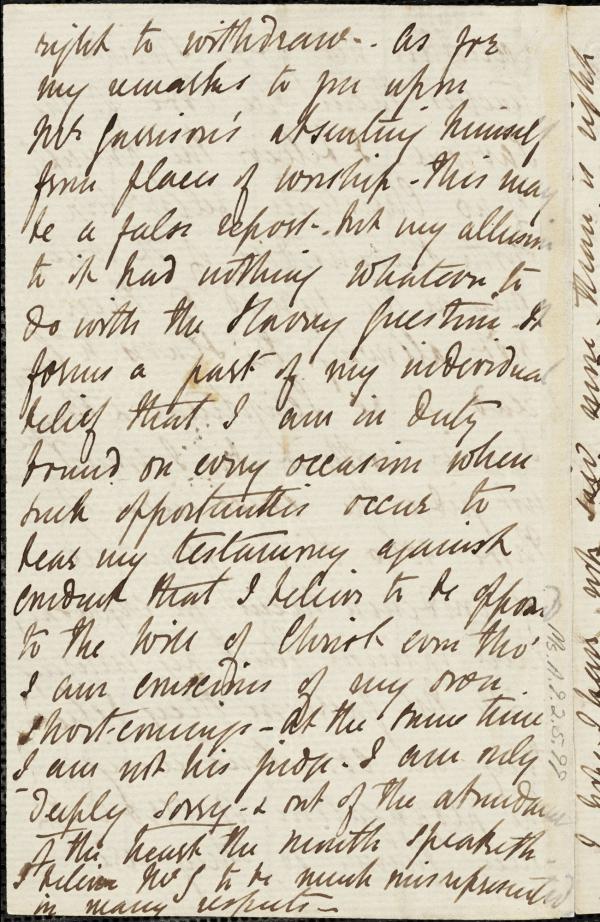 right to withdraw-. As for
my remarks to you upon
Mr Garrison's absenting himself
from places of worship - this may
be a false report-. but my allusion
to it had nothing whatever to
do with the Slavery Question. It
forms a part of my individual
belief that I am in duty
bound on every occasion when
such opportunities occur to
bear my testamony against
conduct that I believe to be oppos
to the Will of Christ even tho'
I am conscious of my own
short-comings - at the same time
I am not his judge. I am only
deeply sorry - & out of the abundance
of the heart the mouth speaketh -
I believe Mr G to be much misrepresented
in many respects -
Ms. A.9.2.5.98
I have not said more than is right